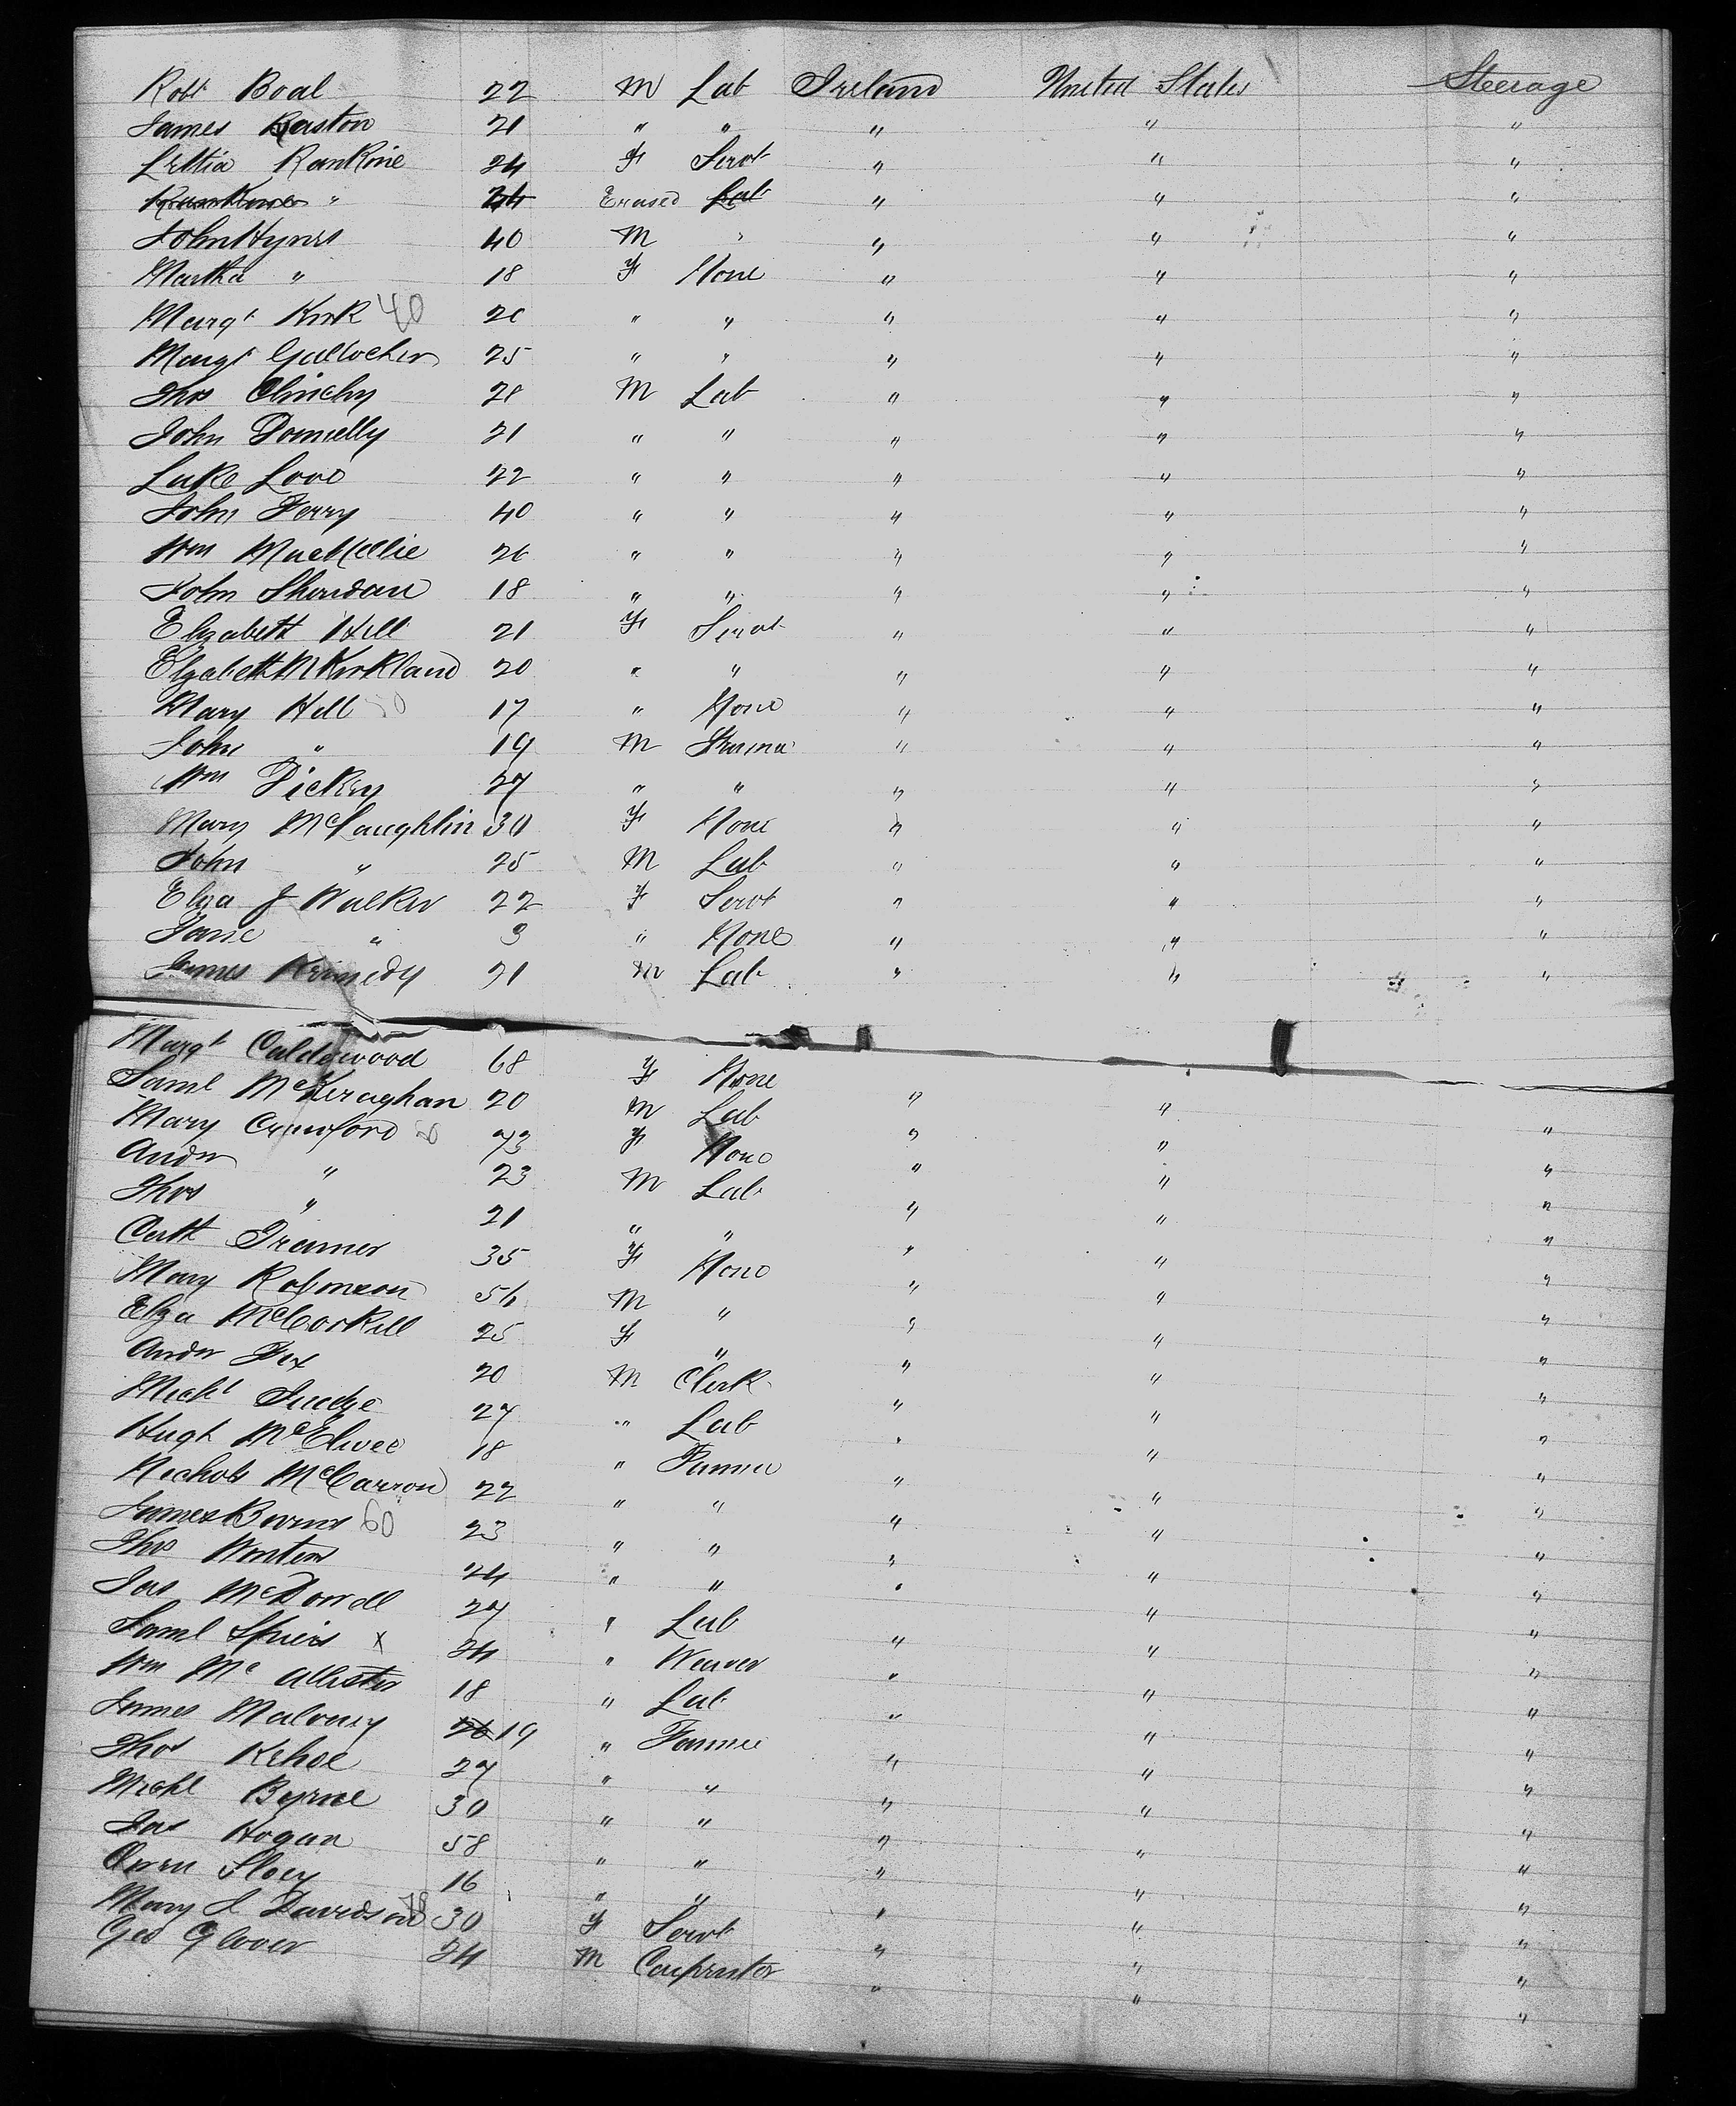 Robt Boal 22 M Lab Ireland United States Steerage
James Easton 21 " " " " "
Lettia Rankine 24 F Servt " " "
Rankine " 24 Erased Lab " " "
John Hynes 40 M " " " "
Martha " 18 F None " " "
Margt Kirk 40 20 " " " " "
Margt Gallocher 25 " " " " "
Thos Clinchy 28 M Lab " " "
John Donnelly 21 " " " " "
Luke Love 22 " " " " "
John Ferry 40 " " " " "
Wm 26 " " " " "
John Sheridan 18 " " " " "
Elizabeth Hill 21 F Servt " " "
Elizabeth M Kirkland 20 " " " " "
Mary Hill 50 17 " None " " "
John " 19 M Farmer " " "
Wm Dickey 27 " " " " "
Mary McLaughlin 30 F None " " "
John " 25 M Lab " " "
Eliza J Walker 22 F Servt " " "
Jane " 3 " None " " "
James Kennedy 21 M Lab " " "
Margt Calderwood 68 F None " " "
Saml McKeraghan 20 M Lab " " "
Mary Crawford 73 F None " " "
Andw " 23 M Lab " " "
Thos " 21 " " " " "
Cath 35 F None " " "
Mary Robinson 56 M " " " "
Eliza McCorkell 25 F " " " "
Andw Fox 20 M Clerk " " "
Michl Judge 27 " Lab " " "
Hugh McElwee 18 " Farmer " " "
Nichols McCarron 22 " " " " "
James Burns 60 23 " " " " "
Thos Winters 24 " " " " "
Jas McDowell 27 " Lab " " "
Saml Spiers x 24 " Weaver " " "
Wm McAllister 18 " Lab " " "
James Maloney 26 19 " Farmer " " "
Thos Kehoe 27 " " " " "
Michl Byrne 30 " " " " "
Jas Hogan 58 " " " " "
Owen 16 " " " " "
Mary J Davidson 30 F Servt " " "
Geo Glover 24 M Carpenter " " "